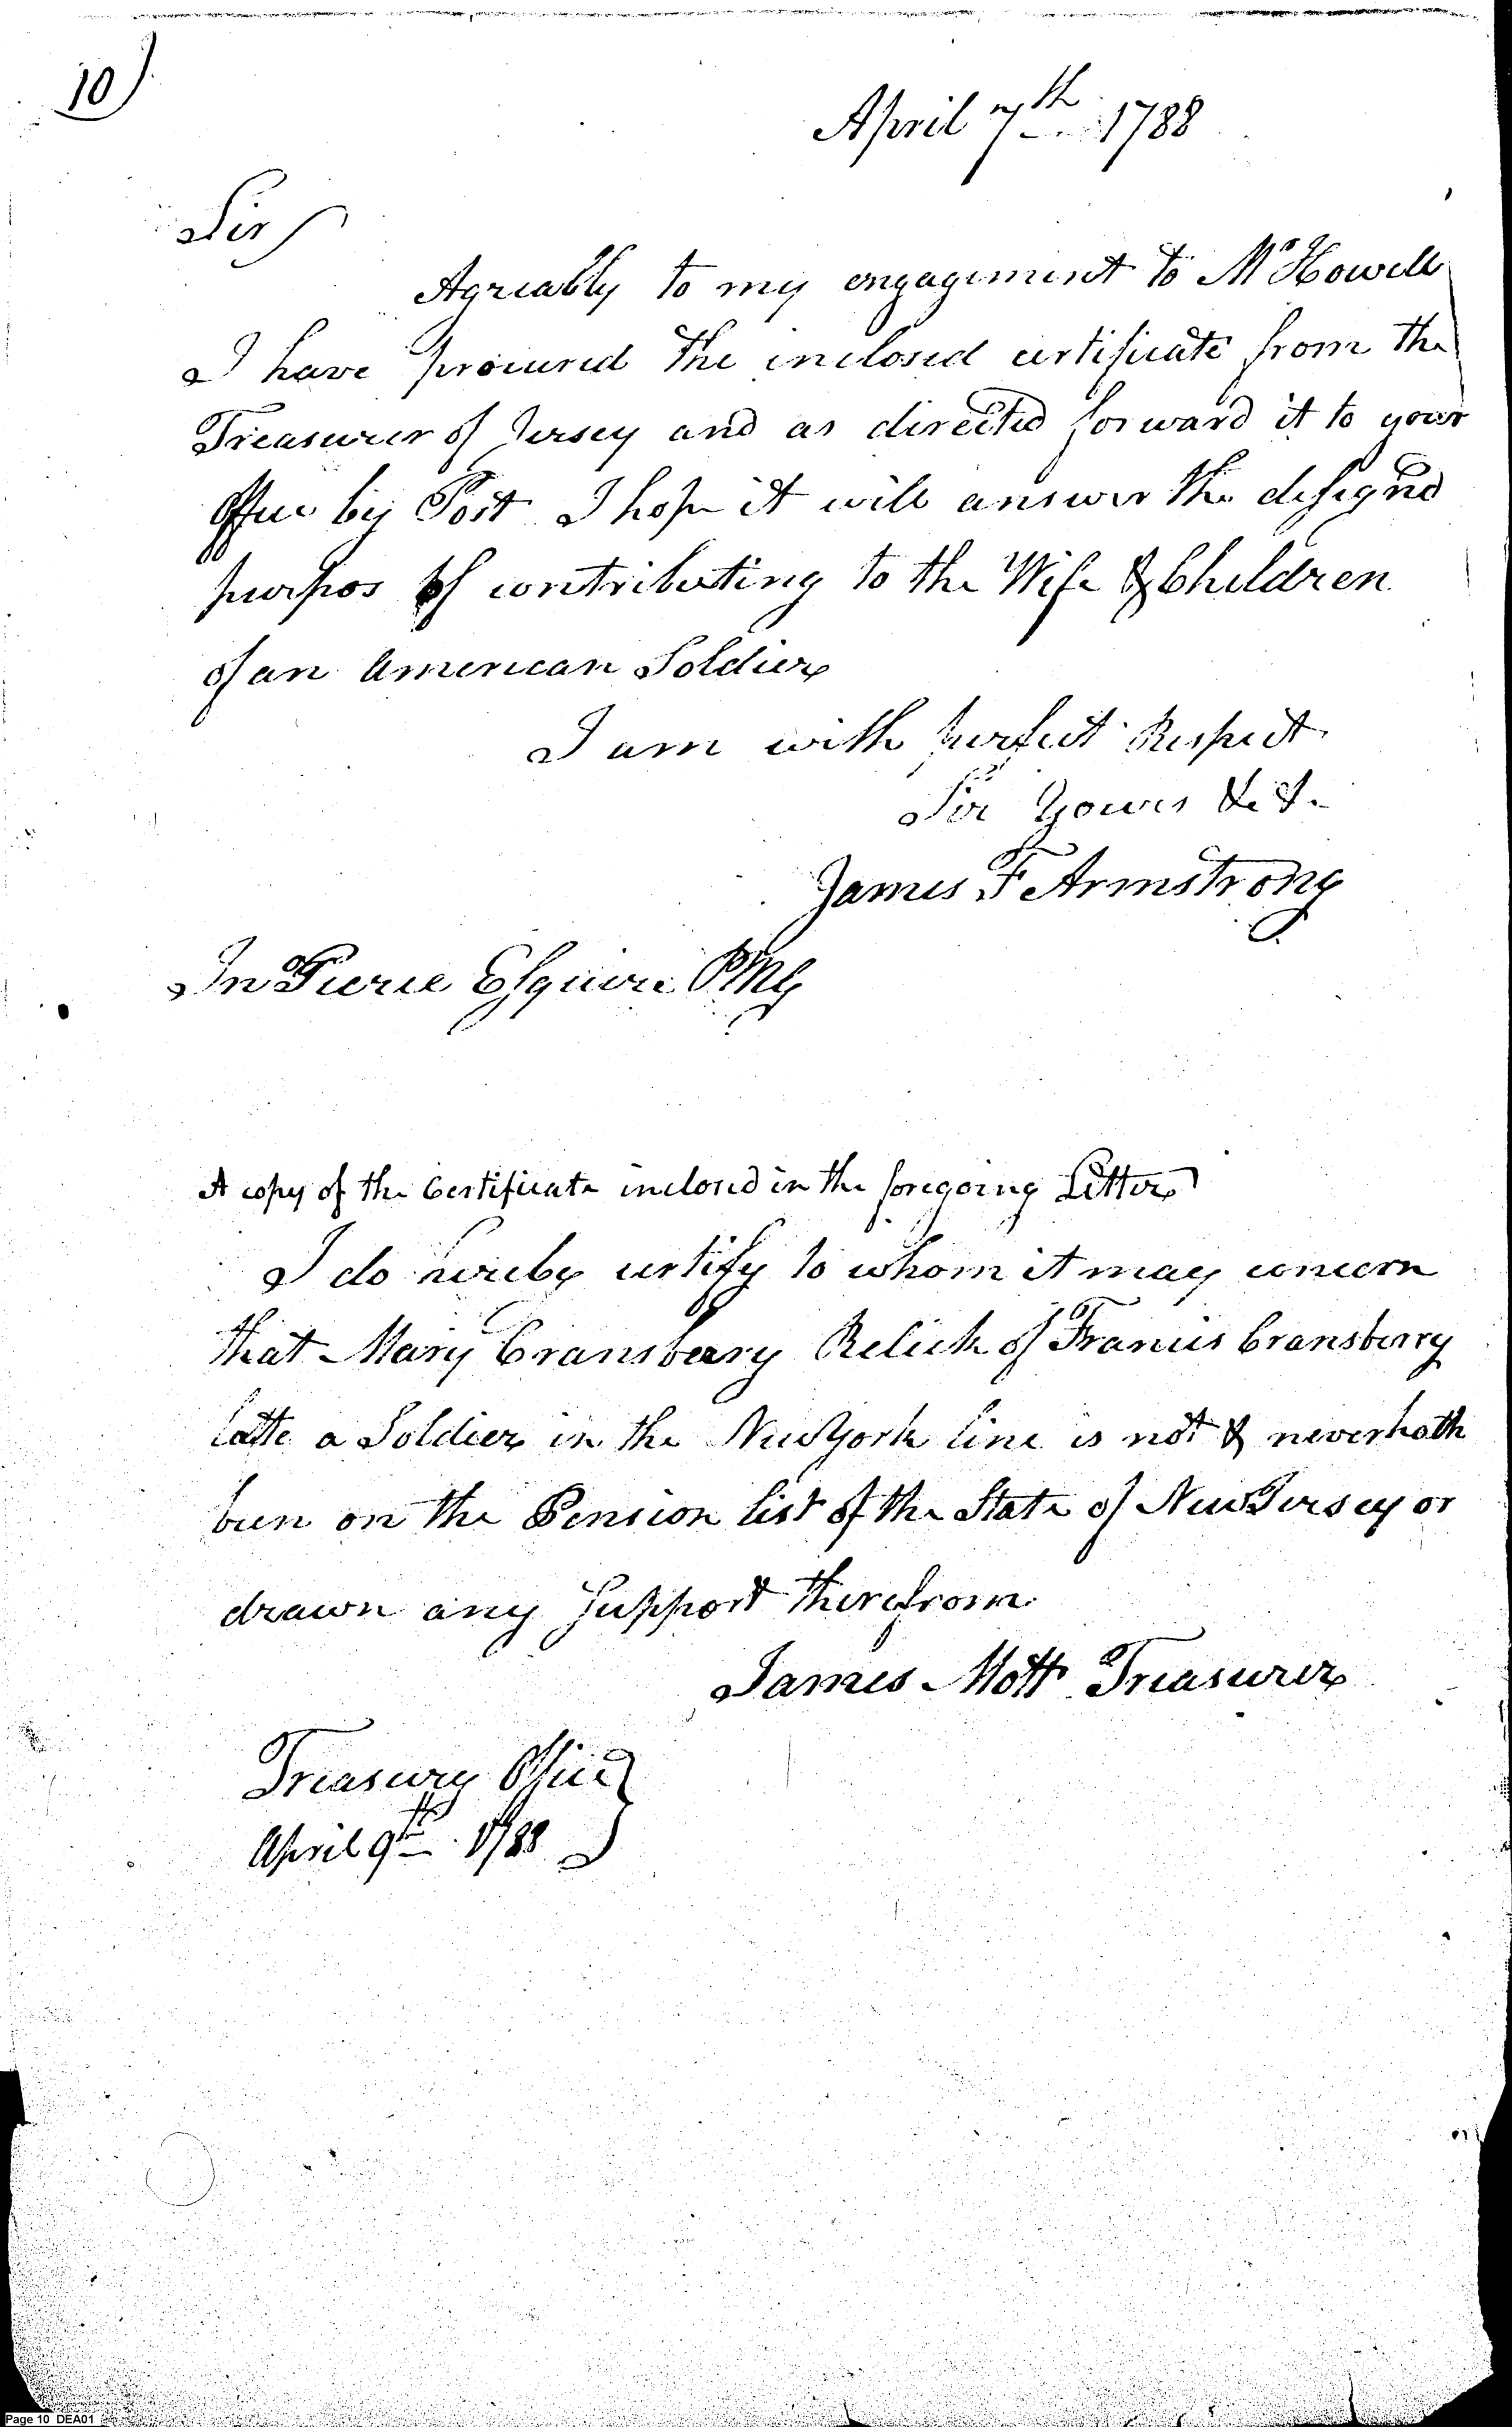 10)
April 7th 1788
Sir
Agreably to my engagement to Mr Howell
I have procured the inclosed certificate from the
Treasurer of Jersey and as directed forward it to your
Office by Post I hope it will answer the designed
purpos of contributing to the Wife & Children
of an American Soldier
I am with perfect Respect
Sir Yours &c &.
James F Armstrong
Jn Pierce Esquire PMG
A copy of the Certificate inclosed in the foregoing Letter
I do hereby certify to whom it may concern
that Mary Cransberry Relick of Francis Cransberry
latte a Soldier in the New York line is not & never hath
been on the Pension list of the State of New Jersey or
drawn any Support therefrom
James Mott Treasurer
Treasury Office
April 9th 1788
Page 10 DEA01